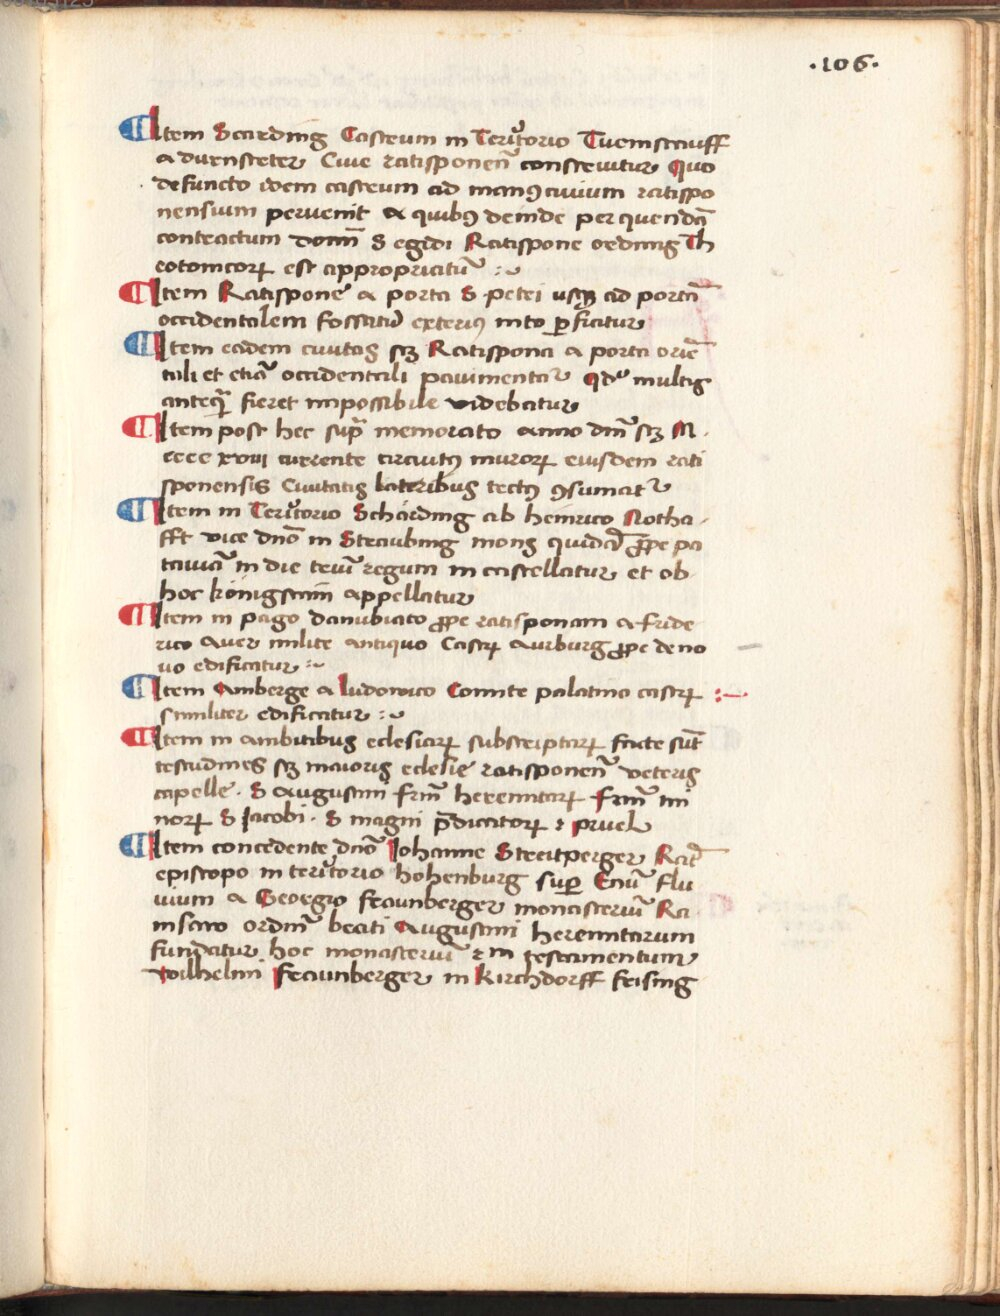 ·106·
Item Scarding Castrum in Teritorio Tuemstauff
a durnsteter Ciue ratisponen̄ construitur Quo
defuncto idem castrum ad manꝰ ciuium ratispo
nensium peruenit a quibꝰ deinde per quendā
contractum domī S egidi Ratispone ordinis Th
eotomcorꝝ est appropriatū
Item Ratispone a porta S petri usqꝫ ad portā
occidentalem fossatū exteriꝰ in to perficitur
Item eadem ciuitas scꝫ Ratispona a porta oriē
tali et etiā occidentali pauimentat᷑ multis
anteq̄ fieret impossibile videbatur
Item post hec supͣ memorato anno dnī scꝫ M ·
cccc xviii currente circuitꝰ murorꝝ eiusdem rati
sponensis Ciuitatis lateribus tectꝰ ꝯsumat᷑
Item in Teritorio Scharding ab heinrico Notha
fft vice dnō in Straubing mons quidā ꝓpe pa
tauiā in die triū regum in castellatur et ob
hoc königstain appellatur
Item in pago danubiato ꝓpe ratisponam a fride
rico Auer milite antiquo Castrꝝ Aurburg ꝓpe de no
uo edificatur
Item Amberge a ludowico Comite palatino castrꝝ
similiter edificatur
Item in ambitibus eclesiarꝝ subscriptarꝝ facte sūt
testudines scꝫ maioris eclesie ratisponen̄ veteris
capelle · S augustini frm̄ heremitarꝝ frm̄ mi
norꝝ S Jacobi · S magni p̄dicatorꝝ ⁊ pruel
Item concedente dnō Johanne Streitperger Rat̄
episcopo in teritorio hohenburg super Enū flu
uium a Georgio fraunberger monasteriū Ra
msaw ordinī beati Augustini heremitarum
fundatur hoc monasteriū ⁊ in testamentum
wilhelmi fraunberger in kirchdorff frising